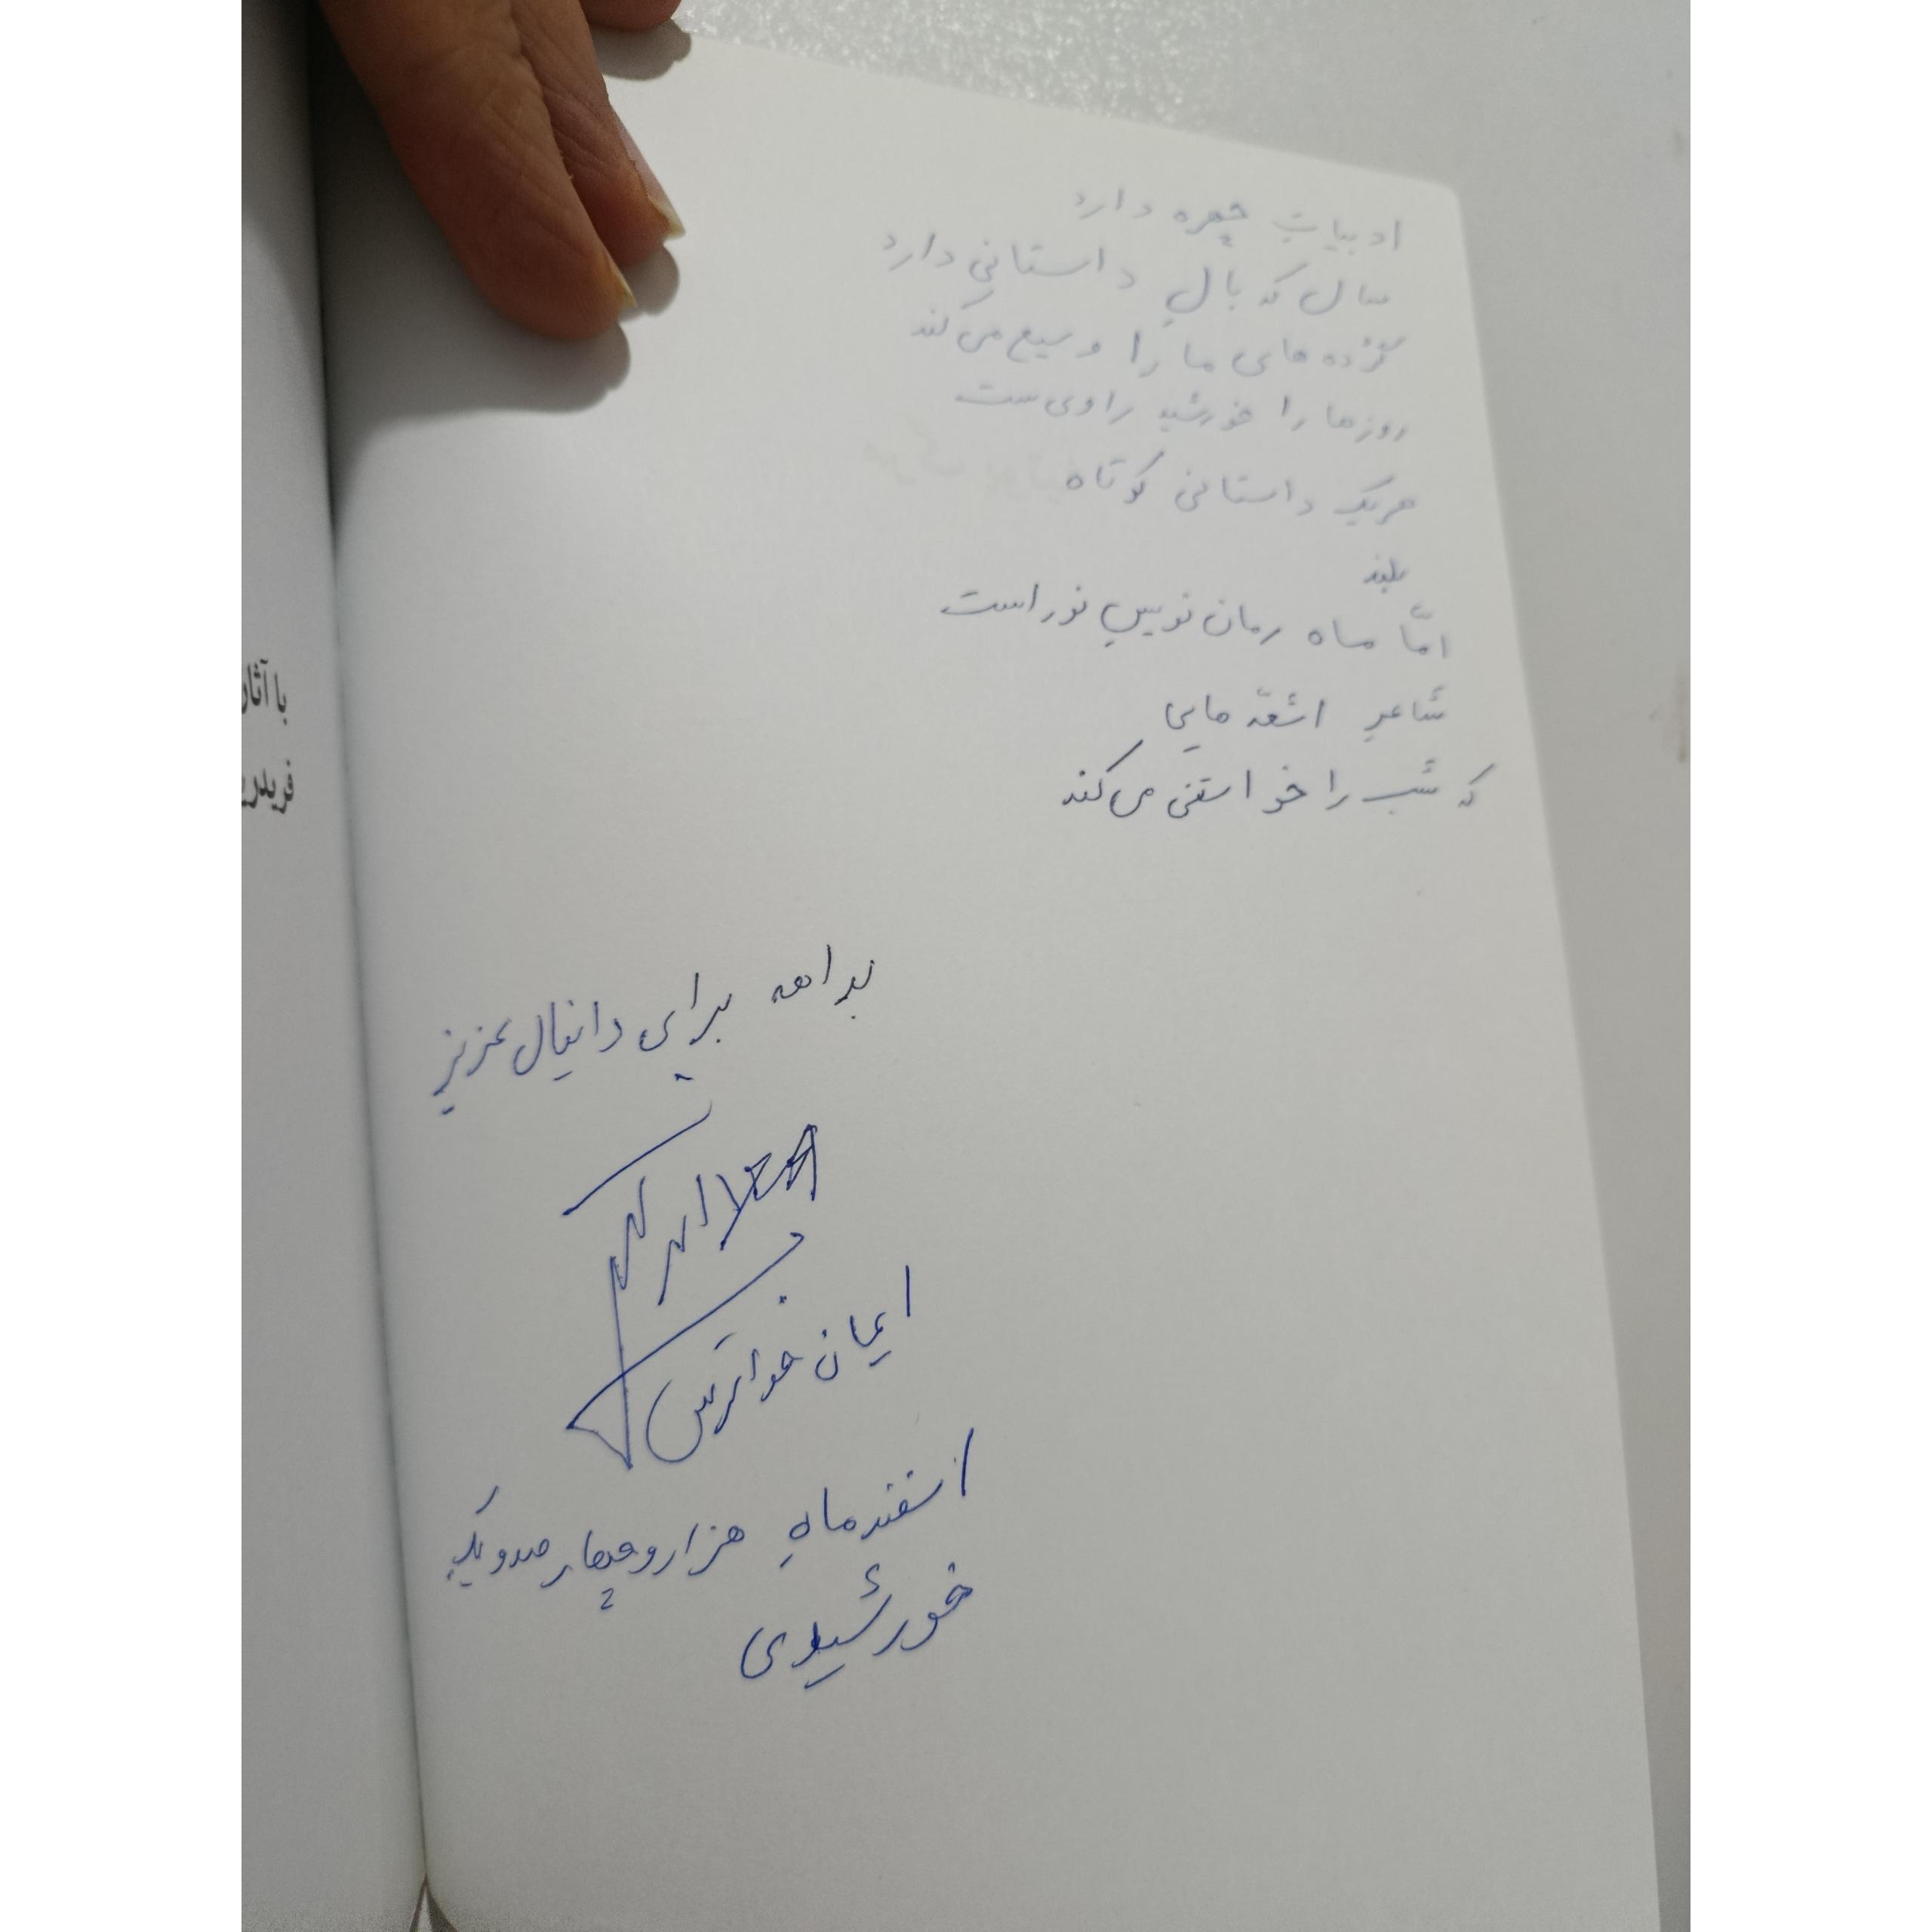 ادبیات چهره دارد
سال که بالِ داستانی دارد
گُرده های ما را وسیع می‌کند
روزها را خورشید راوی ست
هریک داستانی کوتاه
بلند
امّا ماه رمان نویسِ نور است
شاعرِ اشعّه هایی
که شب را خواستنی می‌کند
بداهه برای دانیال عزیز
ایمان خداترس
اسفند ماهِ هزار و چهارصد و یک
خورشیدی
با آثار
فریدری